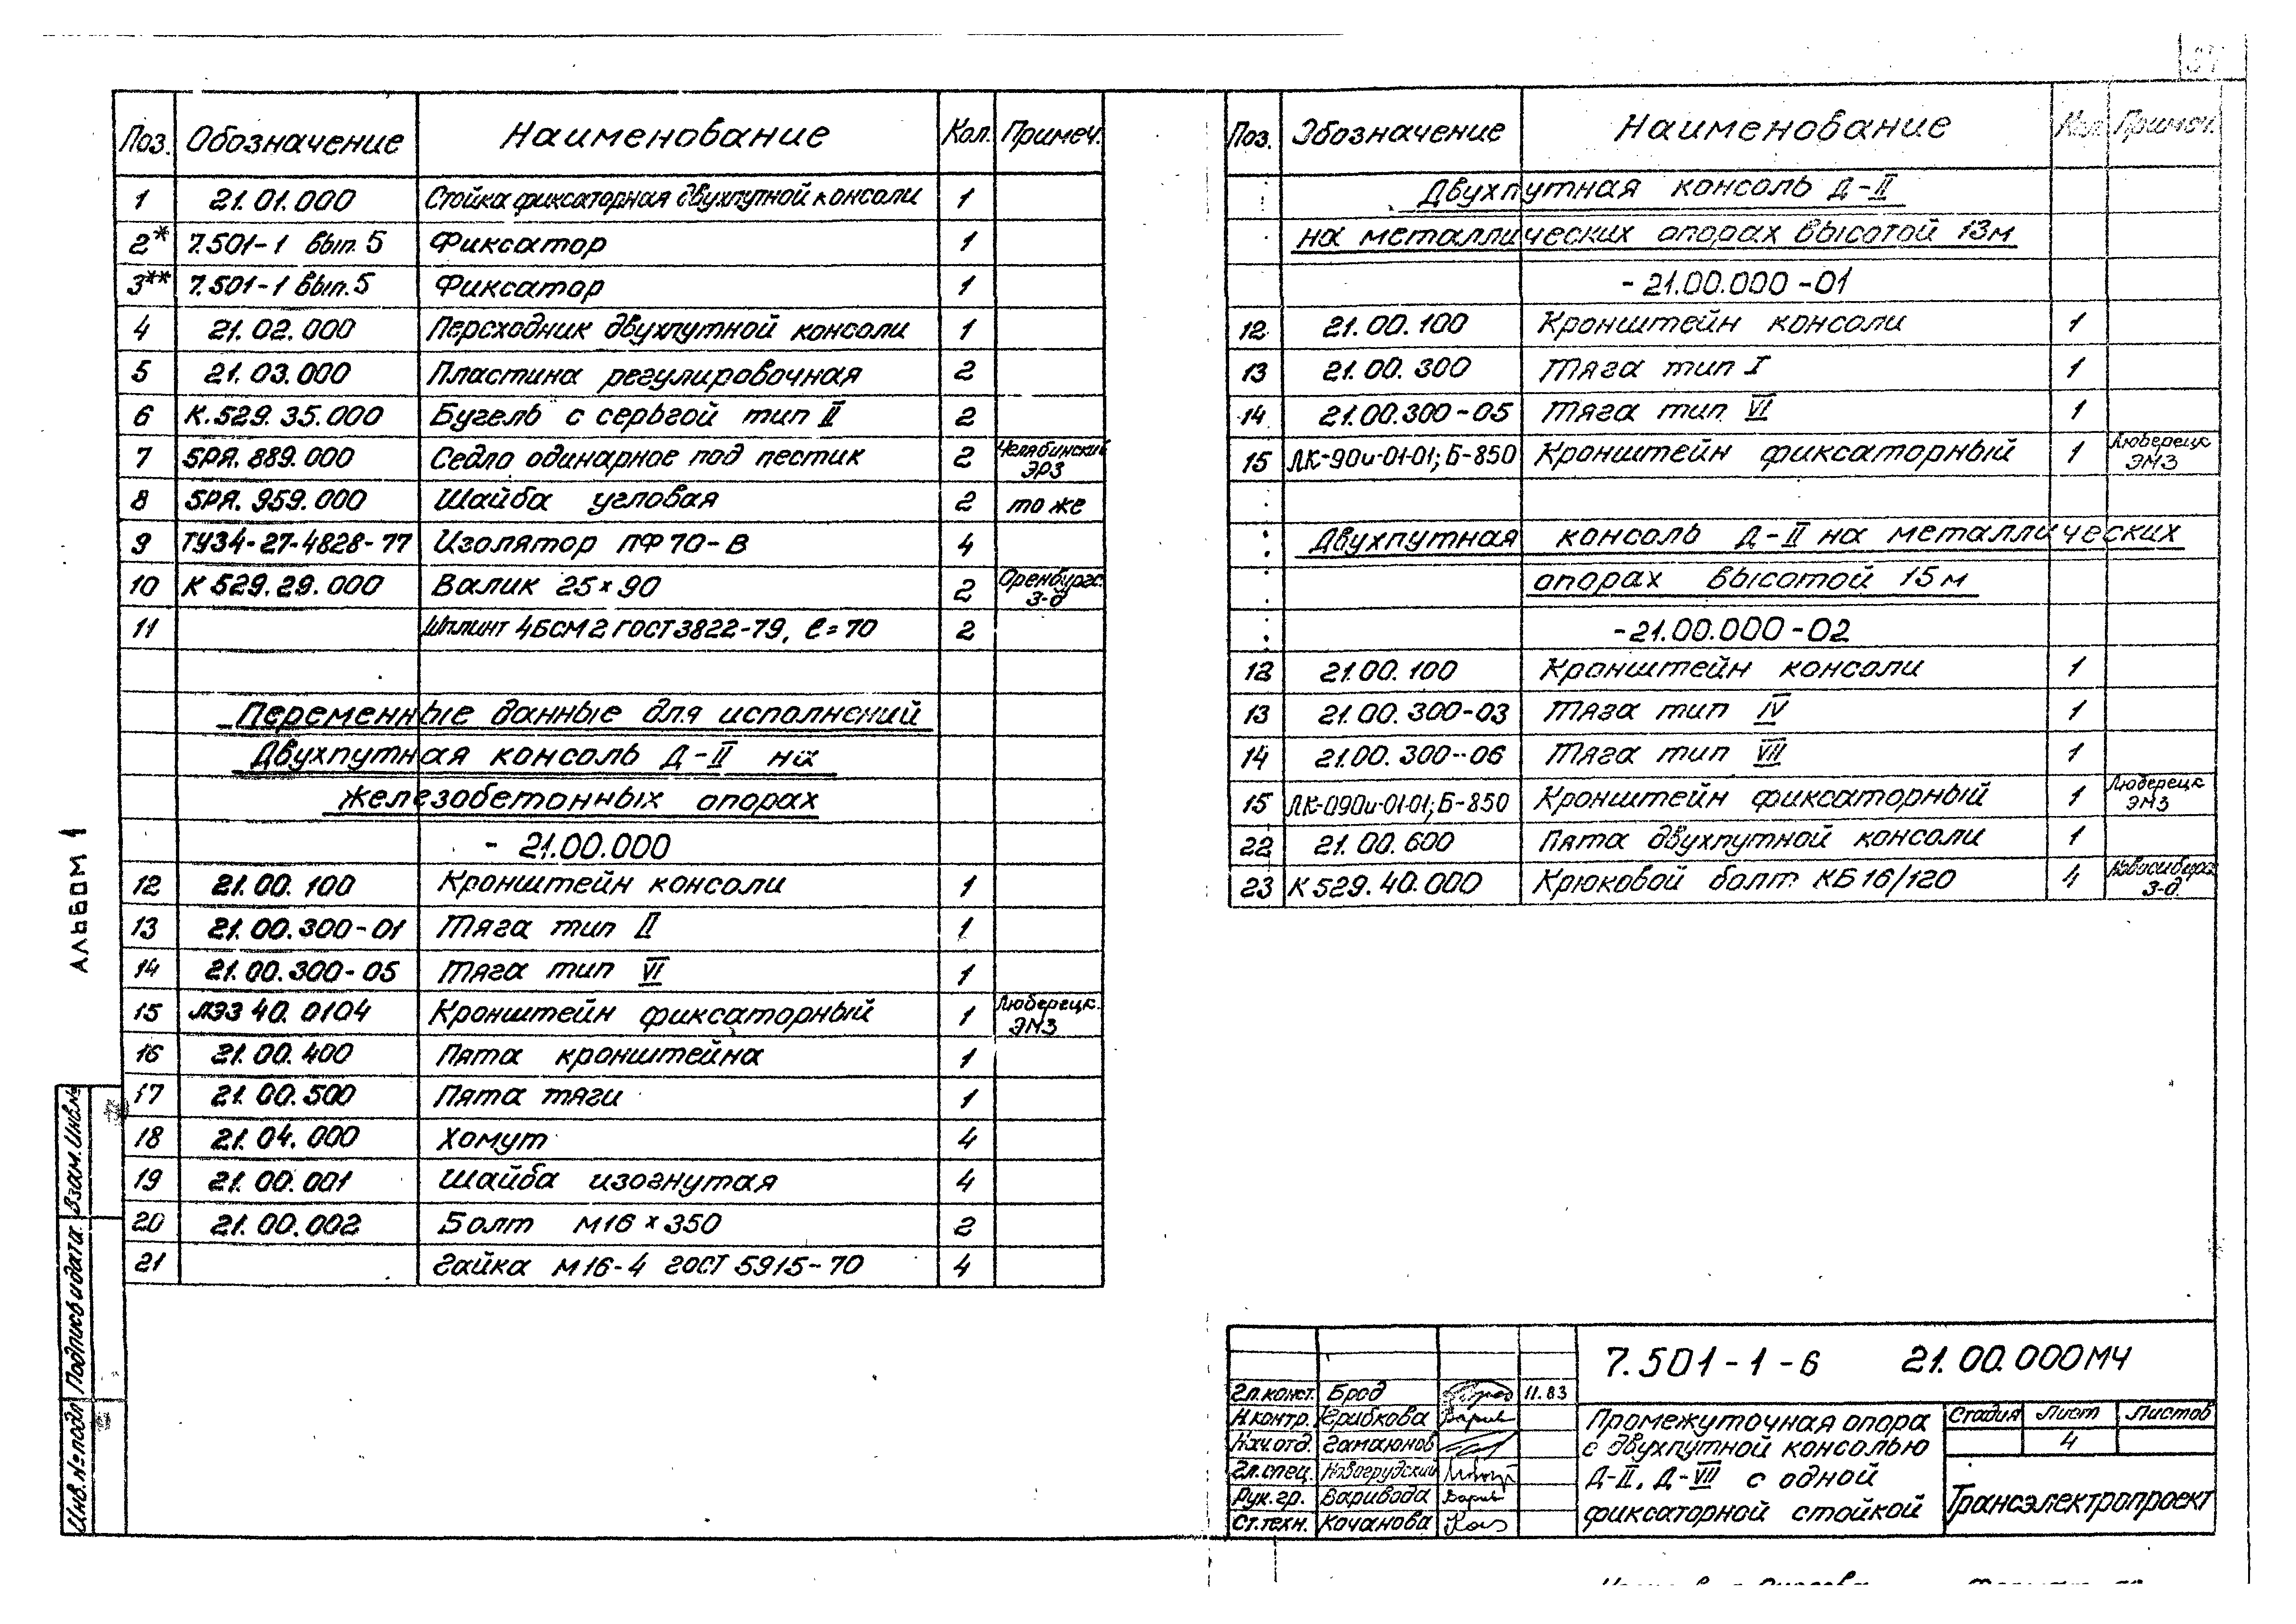 37
Поз. Обозначение Наименование Кол. Примеч.
1 21.01.000 Стойка фиксаторная двухпутной консоли 1
2* 7.501-1 вып. 5 Фиксатор 1
3** 7.501-1 вып. 5 Фиксатор 1
4 21.02.000 Переходник двухпутной консоли 1
5 21.03.000 Пластина регулировочная 2
6 К.529.35.000 Бугель с серьгой тип II 2
7 5РЯ.889.000 Седло одинарное под пестик 2 Челябинский ЭРЗ
8 5РЯ.959.000 Шайба угловая 2 то же
9 ТУ34-27-4828-77 Изолятор ПФ70-В 4
10 К 529.29.000 Валик 25×90 2 Оренбургс. З-д
11 Шплинт 4БСМ2 ГОСТ 3822-79, ℓ=70 2
Переменные данные для исполнений
Двухпутная консоль Д-II на
железобетонных опорах
- 21.00.000
12 21.00.100 Кронштейн консоли 1
13 21.00.300-01 Тяга тип II 1
14 21.00.300-05 Тяга тип VI 1
15 ЛЭЗ 40.0104 Кронштейн фиксаторный 1 Люберецк. ЭМЗ
16 21.00.400 Пята кронштейна 1
17 21.00.500 Пята тяги 1
18 21.04.000 Хомут 4
19 21.00.001 Шайба изогнутая 4
20 21.00.002 Болт М16×350 2
21 Гайка М16-4 ГОСТ 5915-70 4
Поз. Обозначение Наименование Кол. Примеч.
Двухпутная консоль Д-II
на металлических опорах высотой 13м
- 21.00.000-01
12 21.00.100 Кронштейн консоли 1
13 21.00.300 Тяга тип I 1
14 21.00.300-05 Тяга тип VI 1
15 ЛК-90и-01-01; Б-850 Кронштейн фиксаторный 1 Люберецк ЭМЗ
Двухпутная консоль Д-II на металлических
опорах высотой 15м
-21.00.000-02
12 21.00.100 Кронштейн консоли 1
13 21.00.300-03 Тяга тип IV 1
14 21.00.300-06 Тяга тип VII 1
15 ЛК-090и-01-01; Б-850 Кронштейн фиксаторный 1 Люберецк ЭМЗ
22 21.00.600 Пята двухпутной консоли 1
23 К 529.40.000 Крюковой болт КБ 16/120 4 Новосибирс. З-д.
Альбом 1
Взам. Инв.№
Подпись и дата
Инв. № подл
7.501-1-6 21.00.000МЧ
Гл.конст. Брод 11.83
Н.контр. Грибкова
Нач.отд. Гамаюнов
Гл.спец. Новогрудский
Рук.гр. Варивода
Ст.техн. Кочанова
Промежуточная опора
с двухпутной консолью
Д-II, Д-VII с одной
фиксаторной стойкой
Стадия Лист Листов
4
Трансэлектропроект